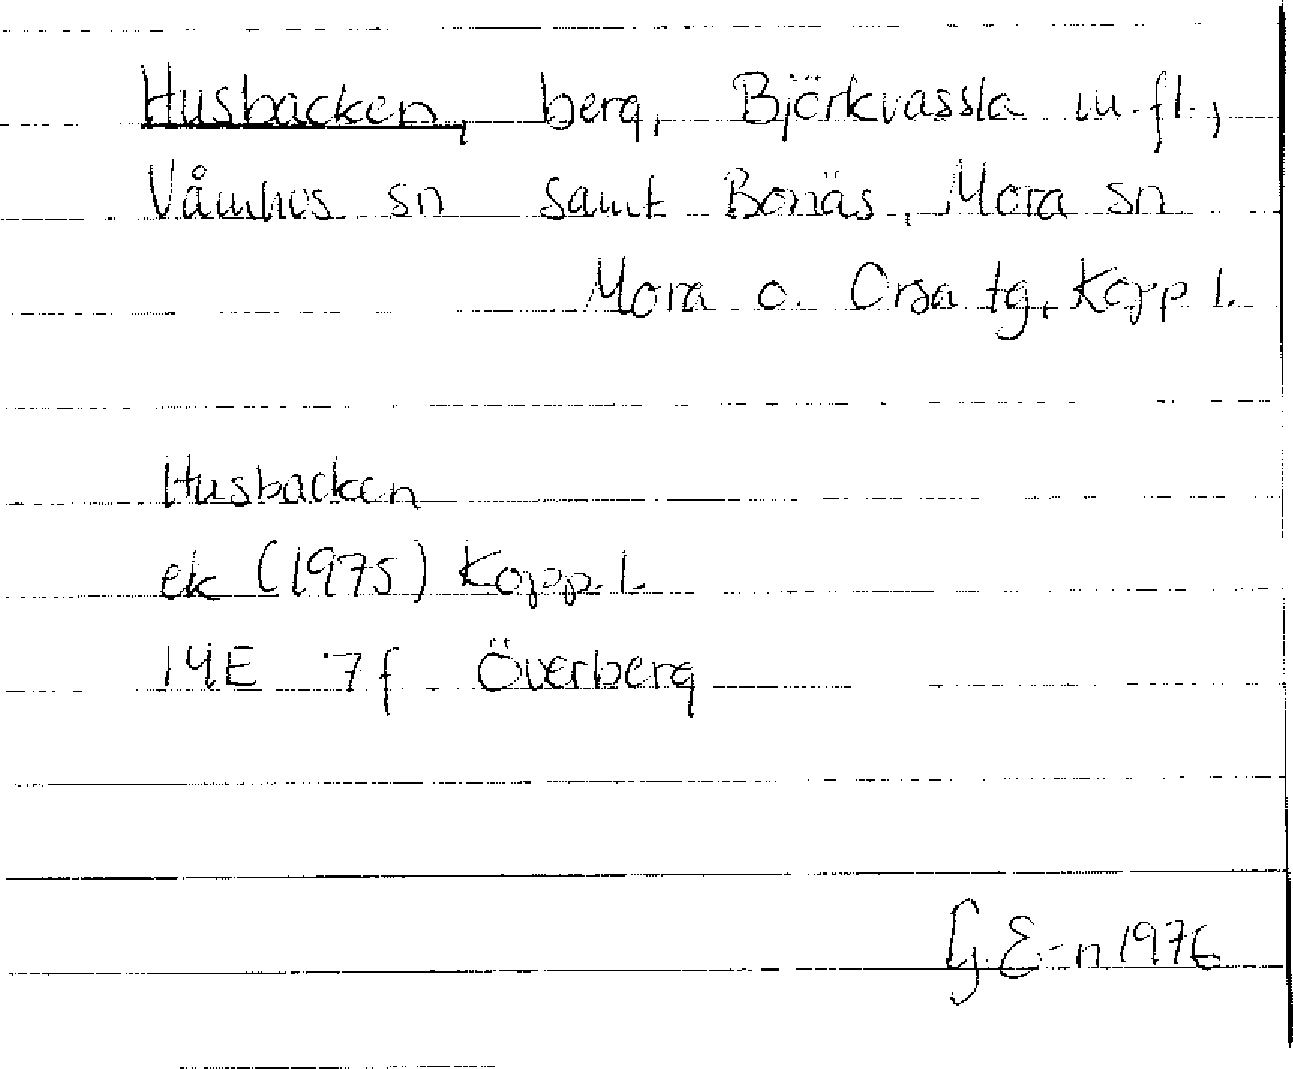 Husbacken, berg, Björkvassla m.fl.,
Våmhus sn samt Bonäs, Mora sn
Mora o. Orsa tg, Kopp l.
Husbacken
ek (1975) Kopp. l.
14E 7f Överberg
G. E-n 1976